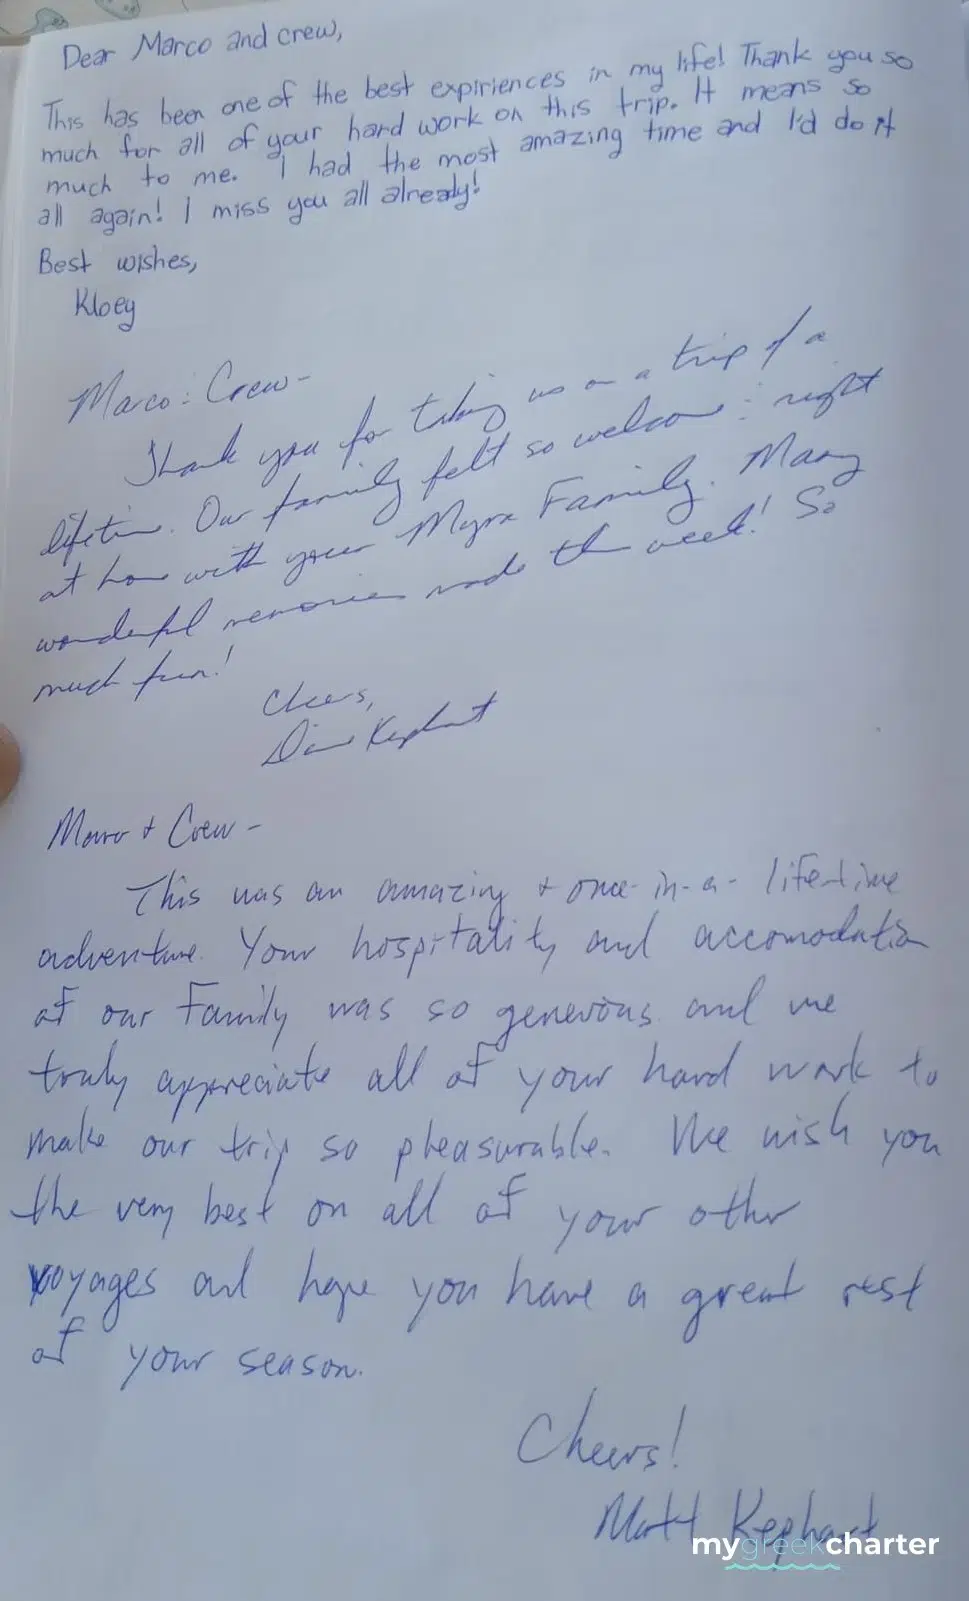 Dear Marco and crew,
This has been one of the best expiriences in my life! Thank you so
much for all of your hard work on this trip. It means so
much to me. I had the most amazing time and I'd do it
all again! I miss you all already!
Best wishes,
Kloey
Marco : Crew -
Thank you for taking us on a trip of a
lifetime. Our family felt so welcome : right
at home with your Myra Family. Many
wonderful memories made this week! So
much fun!
Cheers,
Kephart
Marco + Crew -
This was an amazing + once-in-a-lifetime
adventure. Your hospitality and accomodation
of our family was so generous and we
truly appreciate all of your hard work to
make our trip so pleasurable. We wish you
the very best on all of your other
voyages and hope you have a great rest
of your season.
Cheers!
Matt Kephart
mygreekcharter